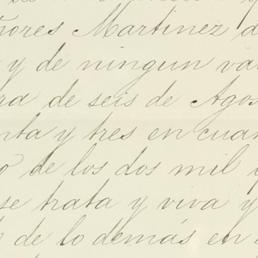 ñores Martinez d
y de ningun va
ra de seis de Agos
nta y tres en cuan
o de los dos mil
se trata y viva y
de lo demás en s